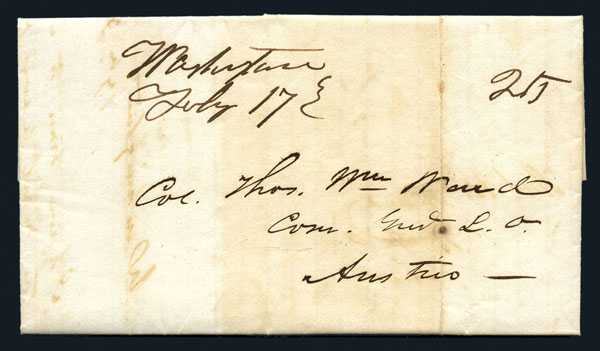 Washington
July 17 25
Col. Thos. Wm Ward
Com. Genl L. O.
Austin —